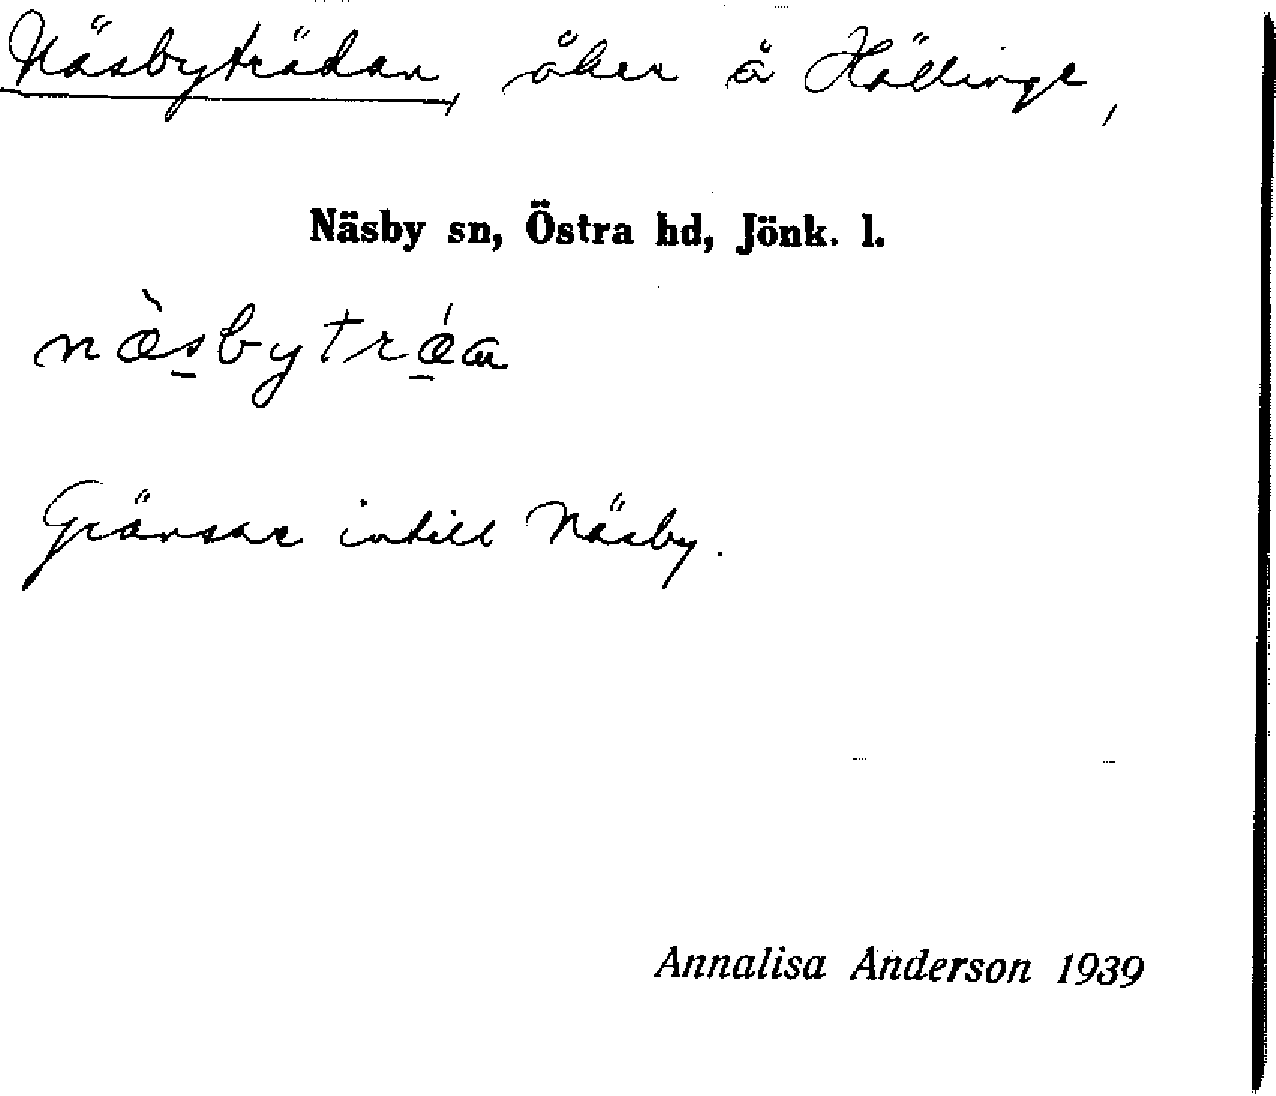 Näsbyträdan, åker å Hällinge,
Näsby sn, Östra hd, Jönk. l.
næ̀sbytrǽa
Gränsar intill Näsby.
Annalisa Anderson 1939